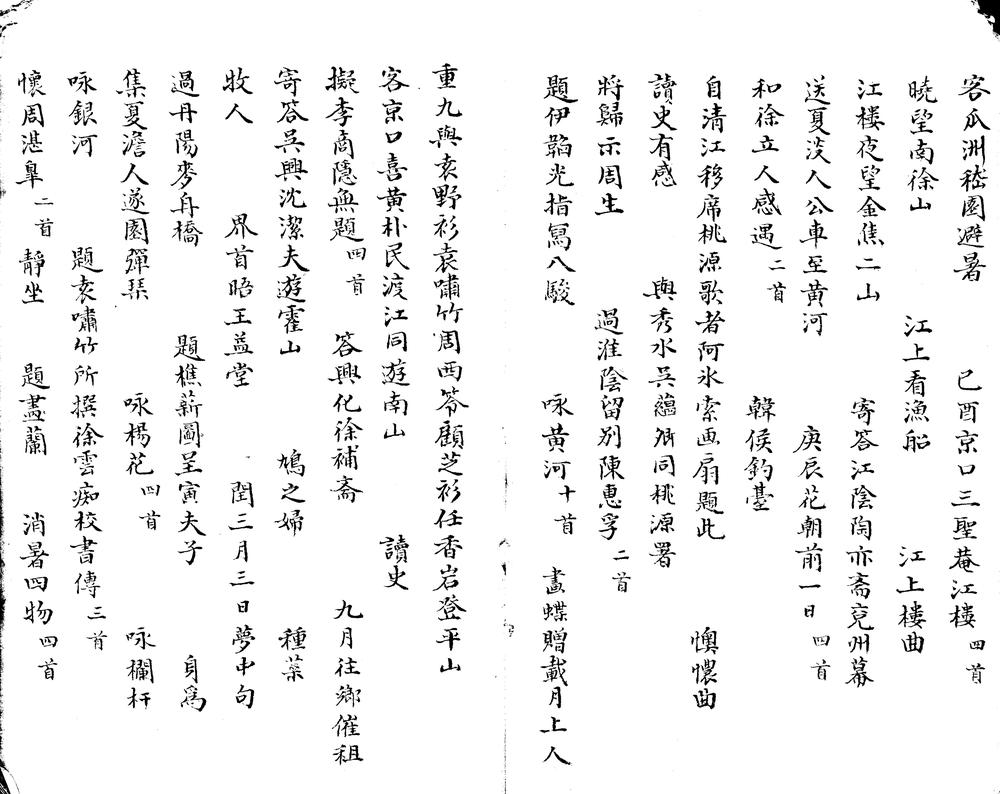 客瓜洲嵇園避暑　己酉京口三聖菴江樓四首
曉望南徐山　江上看漁船　江上樓曲
江楼夜望金焦二山　寄答江陰陶亦斋兗州幕
送夏渓人公車至黄河　庚辰花朝前一日四首
和徐立人感遇二首　韓侯釣臺
自清江移席桃源歌者阿氷索画扇題此　懊憹曲
讀史有感　與秀水吴蘊州同桃源署
將歸示周生　過淮陰留别陳惠孚二首
題伊韜光指寫八駿　咏黄河十首　畫蝶贈載月上人
重九與袁野衫袁嘯竹周西笭顧芝衫任香岩登平山
客京口喜黄朴民渡江同遊南山　讀史
擬李商隱無題四首　答興化徐補斋　九月往鄉催租
寄答吴興沈潔夫遊霍山　鳩之婦　種菜
牧人　界首晤王益堂　閏三月三日夢中句
過丹陽麥舟橋　題樵薪圖呈寅夫子　身為
集夏澹人遂園彈琹　咏楊花四首　咏欄杆
咏銀河　題袁嘯竹所撰徐雲痴校書傳三首
懷周湛臯二首　靜坐　題畫蘭　消暑四物四首